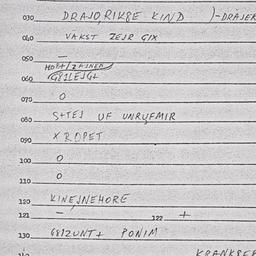 030 DRAJO,RIKBE KIND )-DRAJER
040 VAKST ZEJR GIX
050 –
060
070 O
080 S+TEJ UF UNRUFMIR
090 X ROPET
100 O
110 O
120 KINEJNEHORE
121 – 122 +
130 PONIM
KRANKBEE